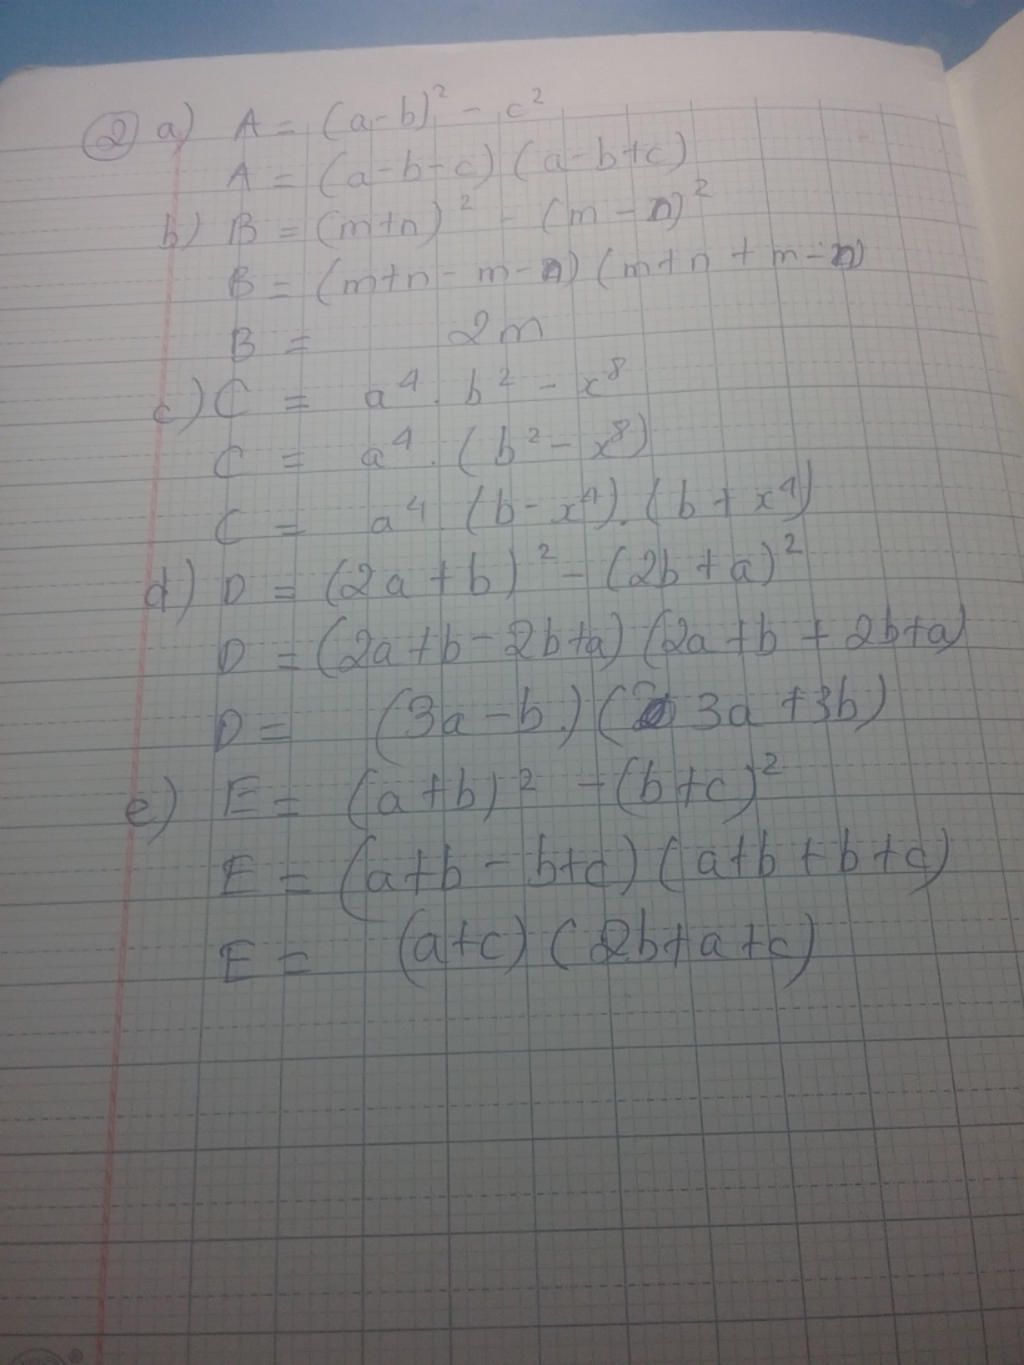 ② a) A = (a-b)² - c²
A = (a-b-c) (a-b+c)
b) B = (m+n)² - (m-n)²
B = (m+n-m-n) (m+n+m-n)
B = 2m
c) C = a⁴ . b² - x⁸
C = a⁴ . (b² - x⁸)
C = a⁴ (b-x⁴) . (b+x⁴)
d) D = (2a+b)² - (2b+a)²
D = (2a+b-2b+a) (2a+b+2b+a)
D = (3a-b) (3a+3b)
e) E = (a+b)² - (b+c)²
E = (a+b-b+c) (a+b+b+c)
E = (a+c) (2b+a+c)